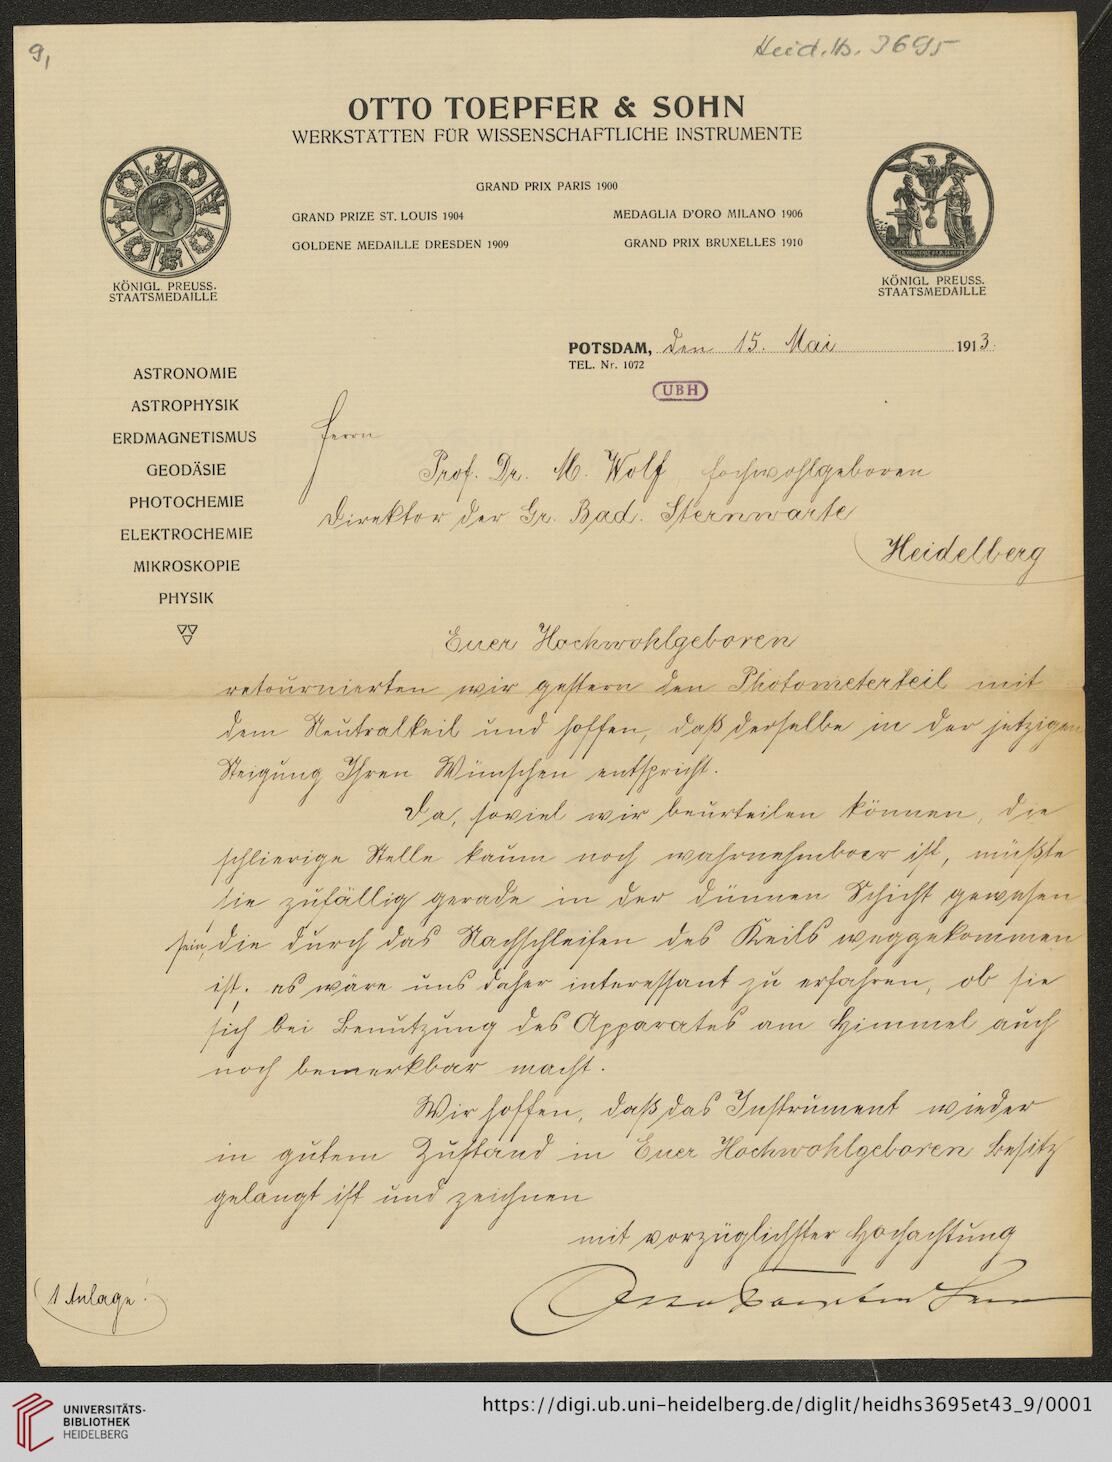 9,
Heid. Hs. 3695
OTTO TOEPFER & SOHN
WERKSTÄTTEN FÜR WISSENSCHAFTLICHE INSTRUMENTE
GRAND PRIX PARIS 1900
GRAND PRIZE ST. LOUIS 1904
MEDAGLIA D'ORO MILANO 1906
GOLDENE MEDAILLE DRESDEN 1909
GRAND PRIX BRUXELLES 1910
KÖNIGL PREUSS.
STAATSMEDAILLE
KÖNIGL PREUSS.
STAATSMEDAILLE
POTSDAM, den 15. Mai 1913.
TEL. Nr. 1072
UBH
ASTRONOMIE
ASTROPHYSIK
ERDMAGNETISMUS
GEODÄSIE
PHOTOCHEMIE
ELEKTROCHEMIE
MIKROSKOPIE
PHYSIK
Herrn
Prof. Dr. M. Wolf, Hochwohlgeboren
Direktor der Gr. Bad. Sternwarte
Heidelberg
Euer Hochwohlgeboren
retournierten wir gestern den Photometerteil mit
dem Neutralkeil und hoffen, daß derselbe in der jetzigen
Steigung Ihren Wünschen entspricht.
Da, soviel wir beurteilen können, die
schlierige Stelle kaum noch wahrnehmbar ist, müßte
sie zufällig gerade in der dünnen Schicht gewesen
sein, die durch das Nachschleifen des Keils weggekommen
ist. es wäre uns daher interessant zu erfahren, ob sie
sich bei Benutzung des Apparates am Himmel auch
noch bemerkbar macht.
Wir hoffen, daß das Instrument wieder
in gutem Zustand in Euer Hochwohlgeboren Besitz
gelangt ist und zeichnen
mit vorzüglichster Hochachtung
Otto Toepfer Sohn
1 Anlage!
UNIVERSITÄTS-
BIBLIOTHEK
HEIDELBERG
https://digi.ub.uni-heidelberg.de/diglit/heidhs3695et43_9/0001